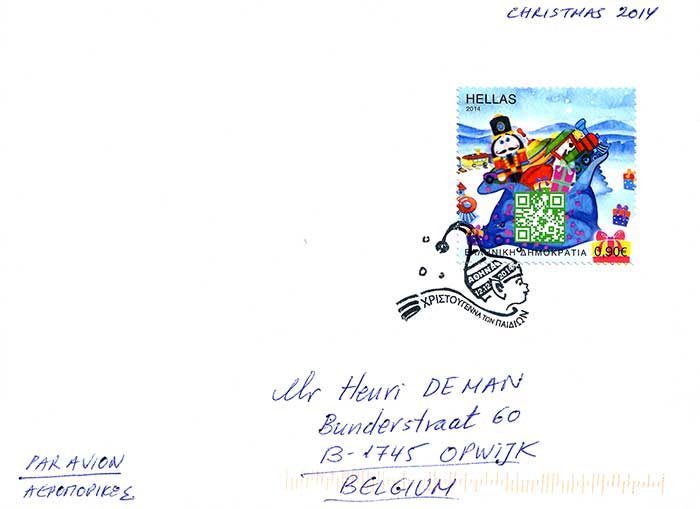 CHRISTMAS 2014
HELLAS
2014
ΕΛΛΗΝΙΚΗ ΔΗΜΟΚΡΑΤΙΑ 0,90€
ΑΘΗΝΑ
ΧΡΙΣΤΟΥΓΕΝΝΑ ΤΩΝ ΠΑΙΔΙΩΝ
Mr Henri DEMAN
Bunderstraat 60
B-1745 OPWIJK
BELGIUM
PAR AVION
ΑΕΡΟΠΟΡΙΚΕΣ